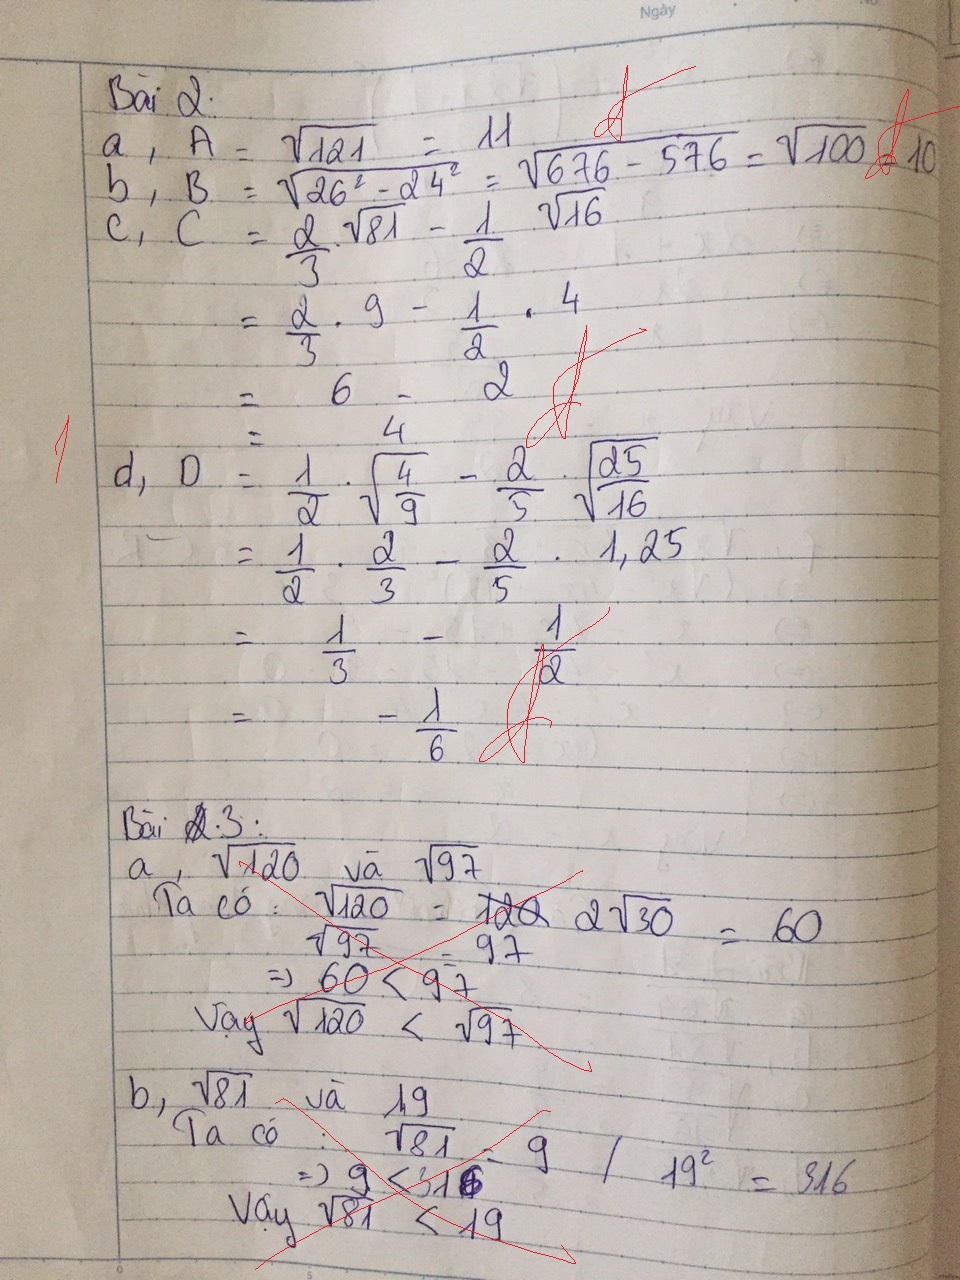 Ngày
Bài 2:
a, A = √121 = 11
b, B = √(26² - 24²) = √(676 - 576) = √100 = 10
c, C = 2/3 . √81 - 1/2 √16
= 2/3 . 9 - 1/2 . 4
= 6 - 2
= 4
1
d, D = 1/2 . √(4/9) - 2/5 . √(25/16)
= 1/2 . 2/3 - 2/5 . 1,25
= 1/3 - 1/2
= - 1/6
Bài 3:
a, √120 và √97
Ta có: √120 = 2√30 = 60
√97 = 97
=> 60 < 97
Vậy √120 < √97
b, √81 và 19
Ta có: √81 = 9 / 19² = 316
=> 9 < 316
Vậy √81 < 19